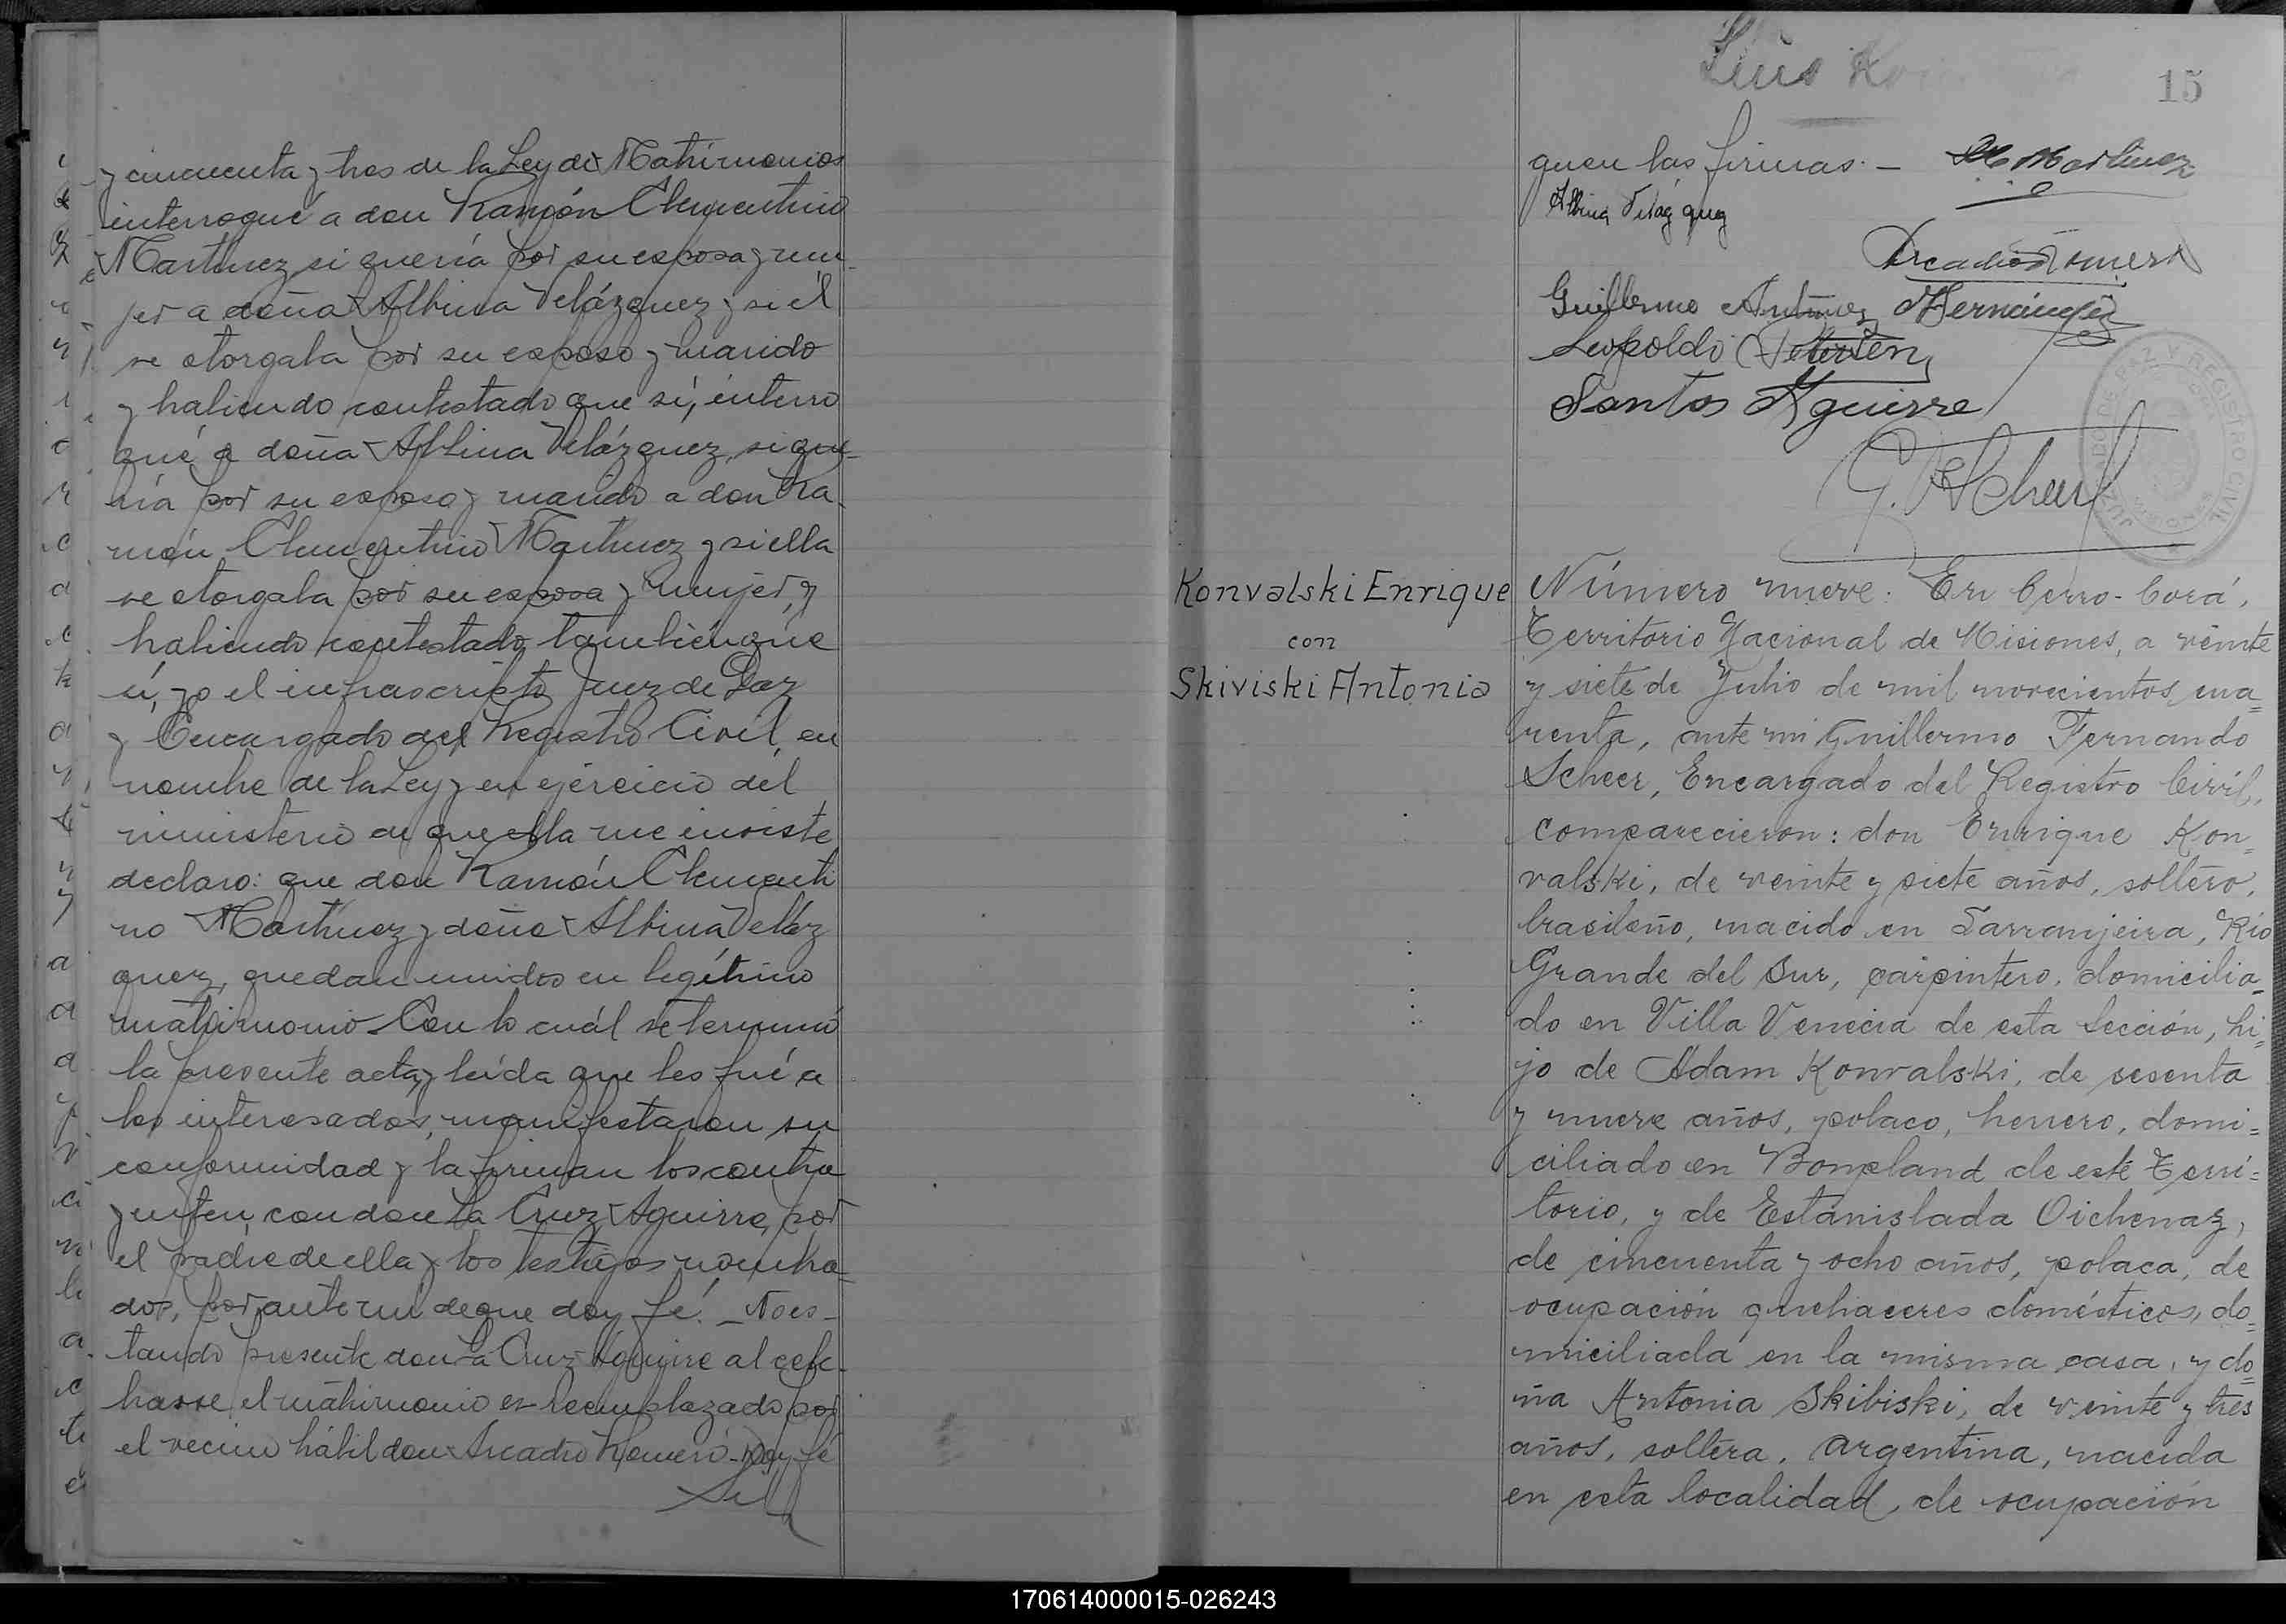 y cincuenta y tres de la Ley de Matrimonios
interrogué a don Ramón Clementino
Martinez si quería por su esposa y mu-
jer a doña Albina Velázquez y si él
se otorgaba por su esposo y marido
y habiendo contestado que sí, interro
gué a doña Albina Velázquez, si que-
ría por su esposo y marido a don Ra
món Clementino Martinez y si ella
se otorgaba por su esposa y mujer, y
habiendo contestado también que
sí, yo el infrascripto Juez de Paz
y Encargado del Registro Civil, en
nombre de la Ley y en ejercicio del
ministerio de que ella me inviste
declaro: que don Ramón Clementi
no Martinez y doña Albina Veláz
quez, quedan unidos en legítimo
matrimonio. Con lo cuál se terminó
la presente acta, y leída que les fué a
los interesados, manifestaron su
conformidad y la firman los contra
yentes, con don La Cruz Aguirre, por
el padre de ella y los testigos nombra-
dos, por ante mí de que doy fé. - No es-
tando presente don La Cruz Aguirre al cele-
brarse el matrimonio es reemplazado por
el vecino hábil don Arcadio Romero - Doy fé
Luis
15
guen las firmas. - Martinez
Albina Velázquez
Arcadio Romero
Guillermo Antunez Hernández
Leopoldo
Santos Aguirre
G. F. Scheer
JUZGADO DE PAZ Y REGISTRO CIVIL
Konvalski Enrique
con
Skiviski Antonia
Número nueve: En Cerro-Corá,
Territorio Nacional de Misiones, a veinte
y siete de Julio de mil novecientos cua=
renta, ante mi Guillermo Fernando
Scheer, Encargado del Registro Civil,
comparecieron: don Enrique Kon=
valski, de veinte y siete años, soltero,
brasileño, nacido en Larranjeira, Río
Grande del Sur, carpintero, domicilia=
do en Villa Venecia de esta Sección, hi=
jo de Adam Konvalski, de sesenta
y nueve años, polaco, herrero, domi=
ciliado en Bompland de este Terri=
torio, y de Estanislada Oichenaz,
de cincuenta y ocho años, polaca, de
ocupación quehaceres domésticos, do=
miciliada en la misma casa, y do=
ña Antonia Skibiski, de veinte y tres
años, soltera, argentina, nacida
en esta localidad, de ocupación
170614000015-026243